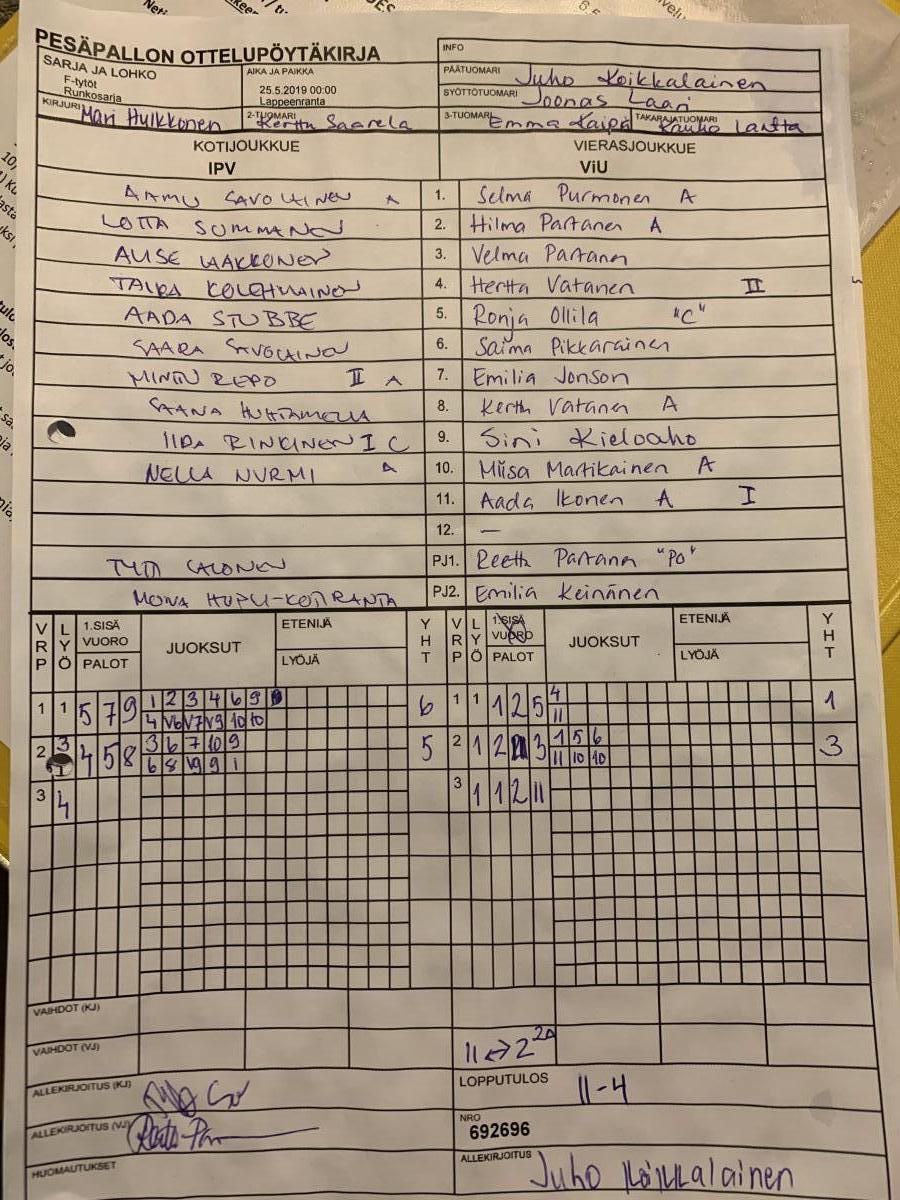 PESÄPALLON OTTELUPÖYTÄKIRJA
INFO
SARJA JA LOHKO
F-tytöt
Runkosarja
AIKA JA PAIKKA
25.5.2019 00:00
Lappeenranta
PÄÄTUOMARI Juho Koikkalainen
SYÖTTÖTUOMARI Joonas Laari
KIRJURI Mari Hulkkonen
2-TUOMARI Kerttu Saarela
3-TUOMARI Emma Kaipa
TAKARAJATUOMARI Lantta
KOTIJOUKKUE
IPV
VIERASJOUKKUE
ViU
AAMU SAVOLAINEN A 1. Selma Purmonen A
LOTTA SUMMANEN 2. Hilma Partanen A
3. Velma Partanen
TAIKA KOLEHMAINEN 4. Hertta Vatanen II
AADA STUBBE 5. Ronja Ollila "C"
SAARA SAVOLAINEN 6. Saima Pikkarainen
MINTTU REPO II A 7. Emilia Jonson
SAANA HUHTAMELLA 8. Kerttu Vatanen A
IIDA RINKINEN I C 9. Sini Kieloaho
NELLA NURMI A 10. Miisa Martikainen A
11. Aada Ikonen A I
12. —
PJ1. Reetta Partanen "PO"
MONA HUPLI-KOTIRANTA PJ2. Emilia Keinänen
VRP LYÖ 1.SISÄ VUORO PALOT JUOKSUT ETENIJÄ LYÖJÄ YHT VRP LYÖ 1.SISÄ VUORO PALOT JUOKSUT ETENIJÄ LYÖJÄ YHT
1 1 5 7 9 1 2 3 4 6 9 6 1 1 1 2 5 4 1
4 V6 V7 V9 10 10 11
2 3 4 5 8 3 6 7 10 9 5 2 1 2 3 1 5 6 3
6 8 V9 9 1 11 10 10
3 4 3 1 1 2 11
VAIHDOT (KJ)
VAIHDOT (VJ) 11 ↔ 2 2A
ALLEKIRJOITUS (KJ)
LOPPUTULOS 11-4
ALLEKIRJOITUS (VJ)
NRO
692696
HUOMAUTUKSET
ALLEKIRJOITUS Juho Koikkalainen